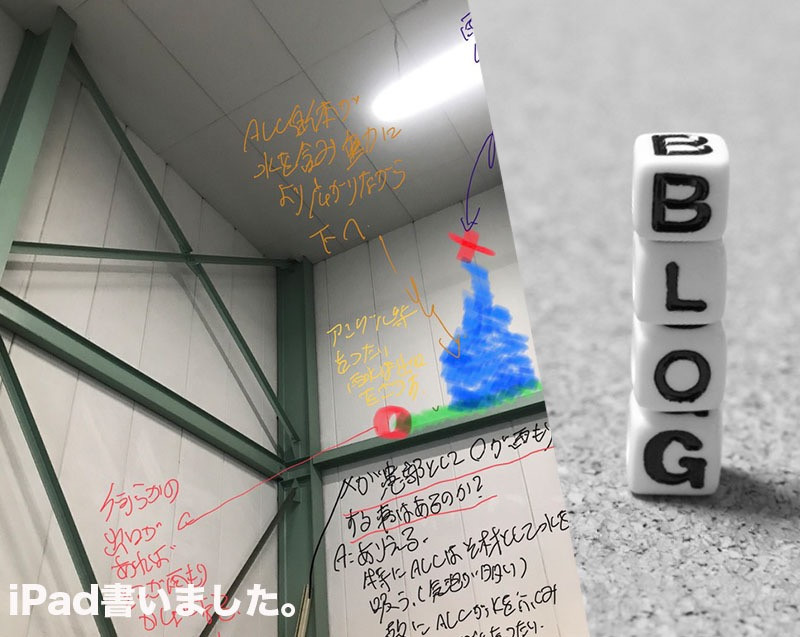 ALC自体が
水を含み重力に
より広がりながら
下へ
アングル等
をつたい
雨水は
何らかの
があれば
雨もり
×が患部として○が雨もり
する事はあるのか?
A:ありえる。
特にALCはそ材として水を
吸う。(気泡が多い)
故にALCが水を
iPad書いました。
B
B
L
O
G